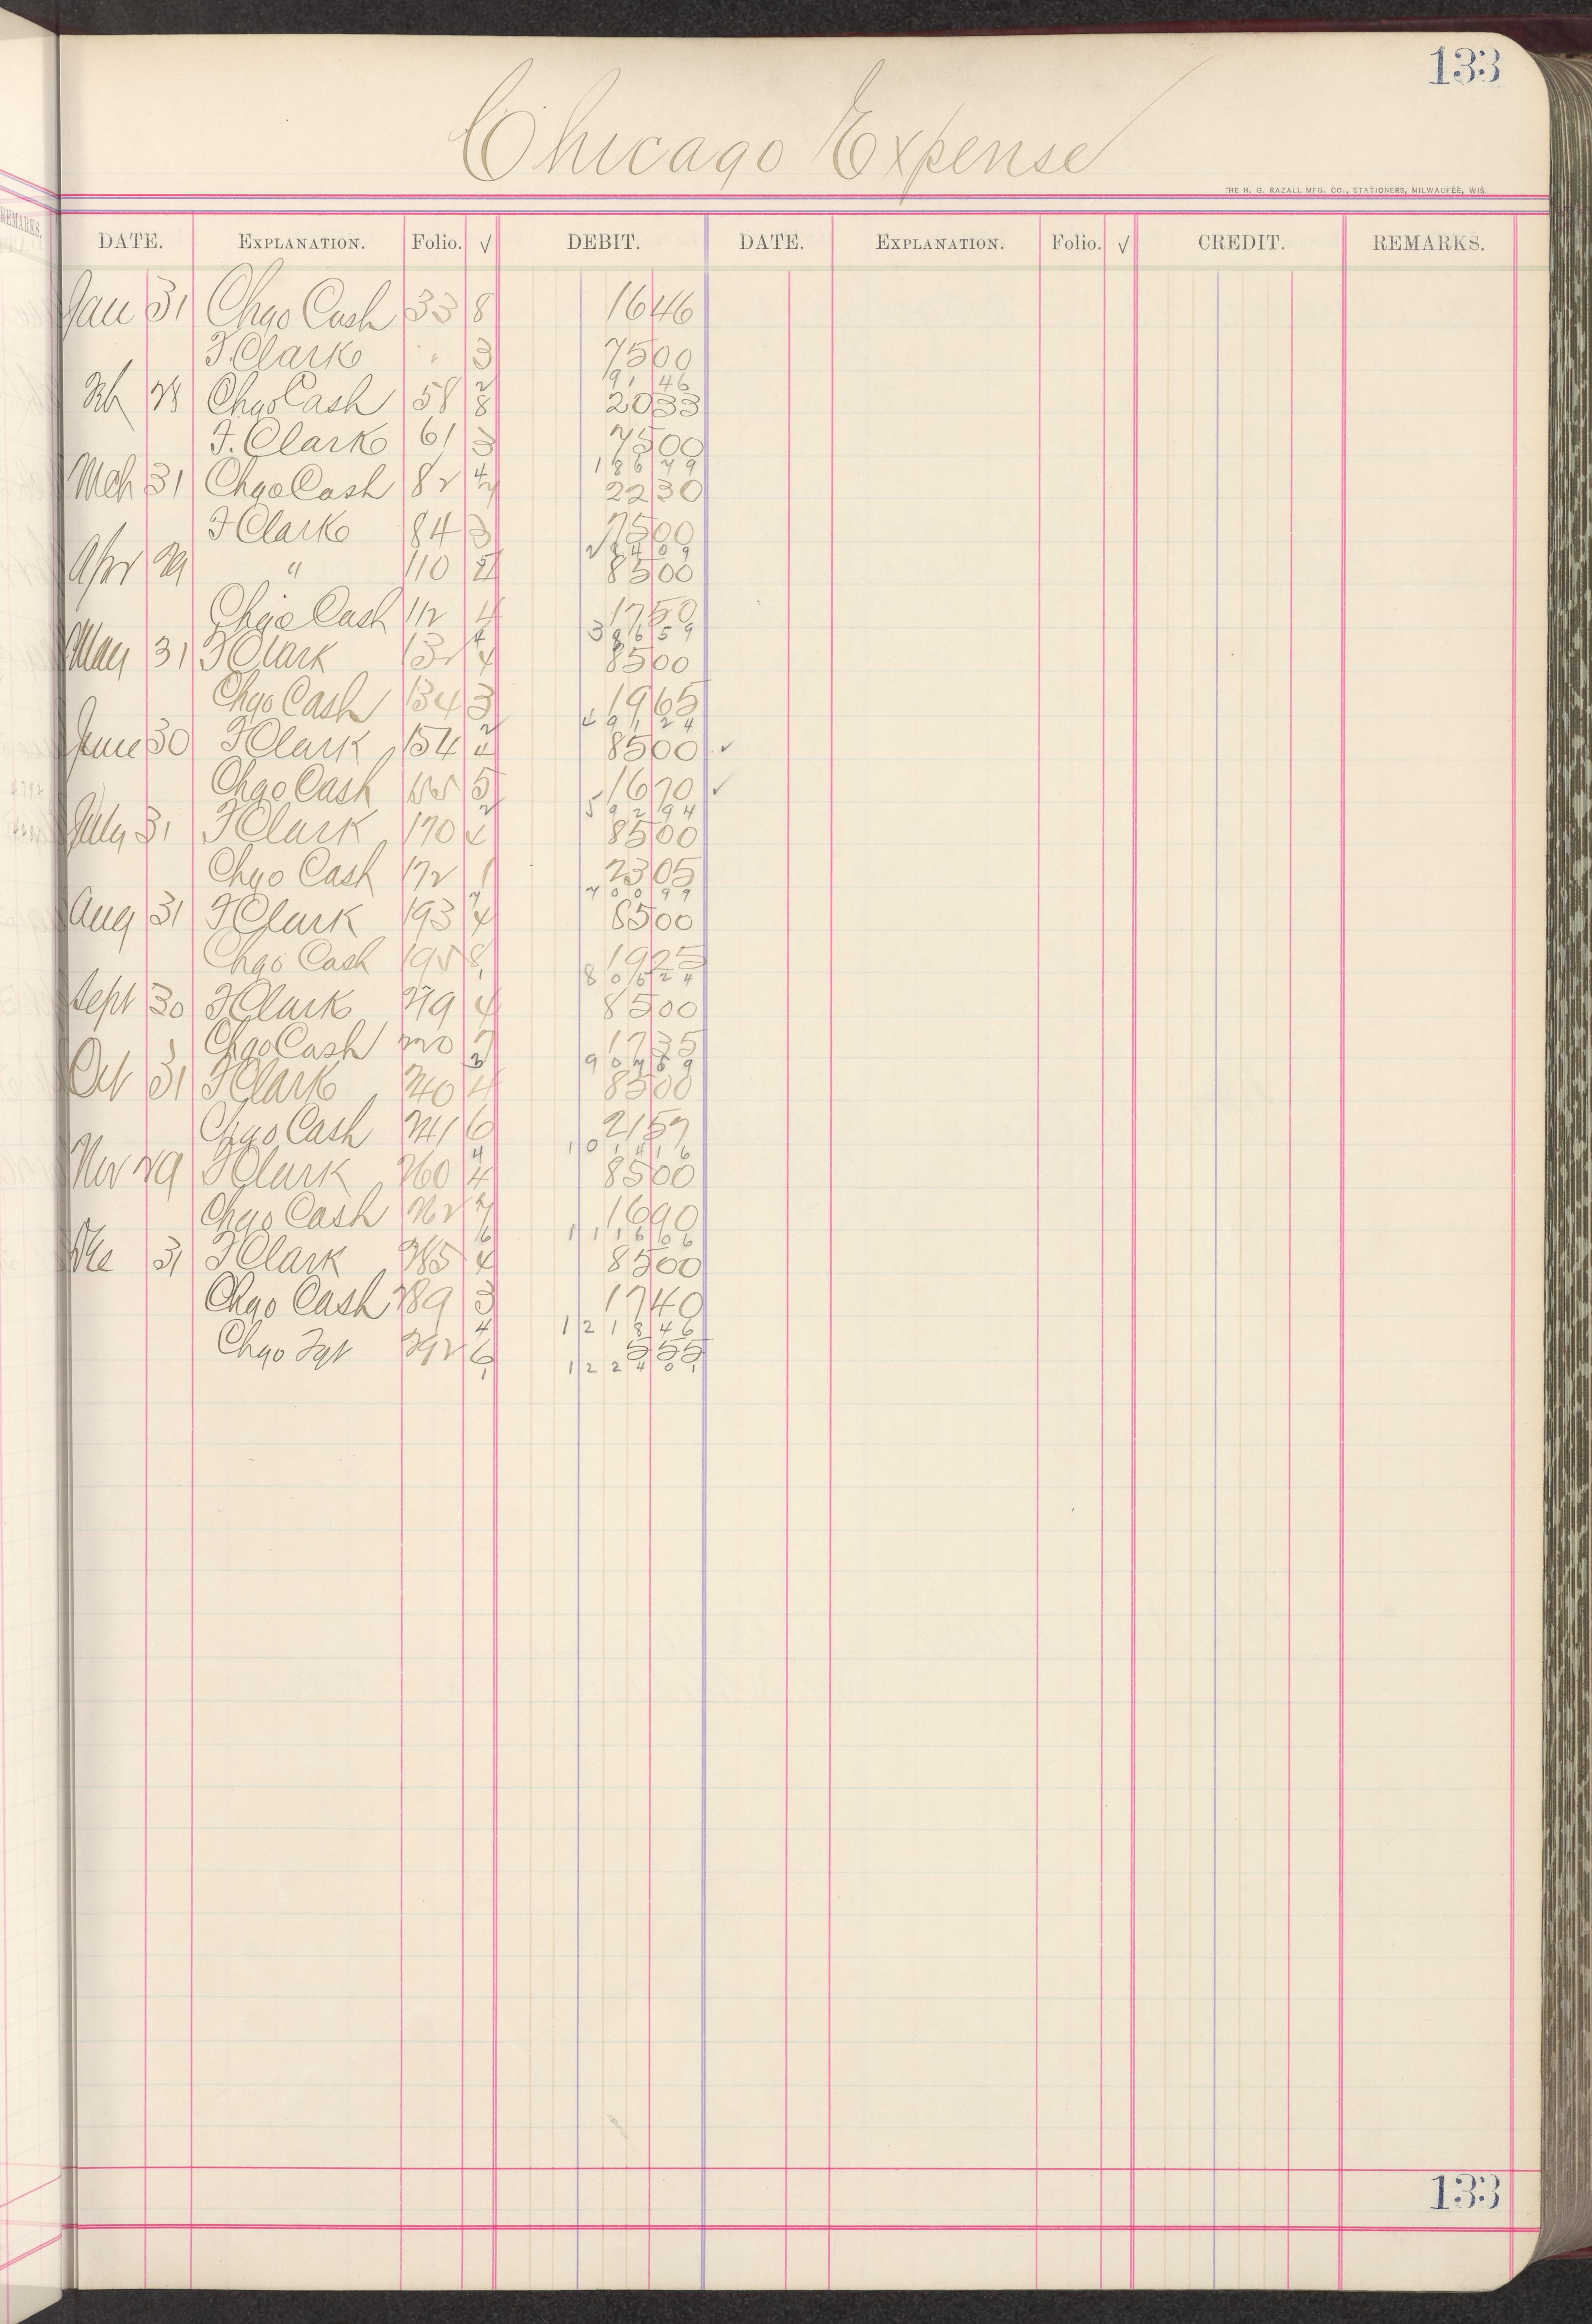 133
Chicago Expense
THE H. G. RAZALL MFG. CO., STATIONERS, MILWAUKEE, WIS.
REMARKS.
DATE. EXPLANATION. Folio. √ DEBIT. DATE. EXPLANATION. Folio. √ CREDIT. REMARKS.
Jan 31 Chgo Cash 33 8 16 46
F. Clark " 3 75 00
91 46
Feb 28 Chgo Cash 58 8 20 33
F. Clark 61 3 75 00
186 79
Mch 31 Chgo Cash 82 22 30
F Clark 84 3 75 00
284 09
Apr 29 " 110 85 00
Chgo Cash 112 4 17 50
386 59
May 31 F Clark 132 4 85 00
Chgo Cash 134 3 19 65
491 24
June 30 F Clark 154 4 85 00 ✓
Chgo Cash 5 16 70 ✓
592 94
July 31 F Clark 170 4 85 00
Chgo Cash 172 1 23 05
700 99
Aug 31 F Clark 193 4 85 00
Chgo Cash 195 8 19 25
805 24
Sept 30 F Clark 219 4 85 00
Chgo Cash 220 17 35
907 59
Oct 31 F Clark 240 4 85 00
Chgo Cash 241 6 21 57
1014 16
Nov 29 F Clark 260 4 85 00
Chgo Cash 262 16 90
1116 06
Dec 31 F Clark 285 4 85 00
Chgo Cash 289 3 17 40
1218 46
Chgo Frt 292 6 5 55
1224 01
133